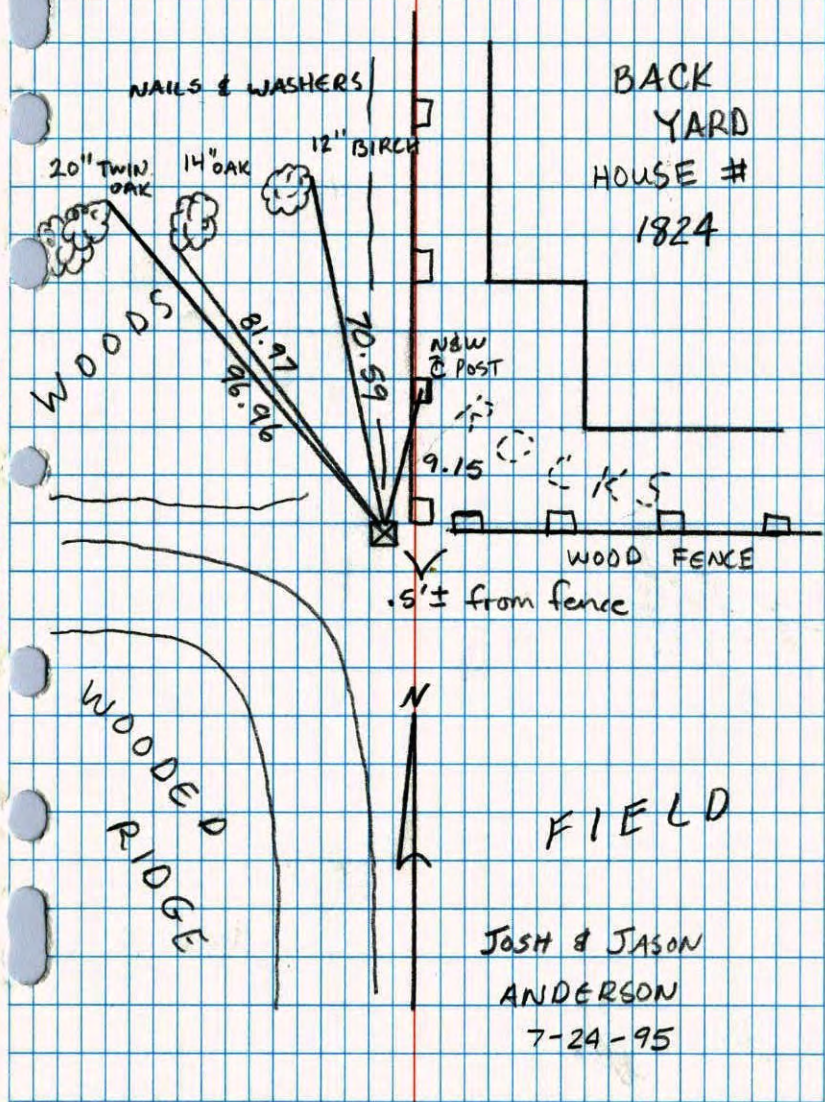 NAILS & WASHERS
BACK
YARD
HOUSE #
1824
12" BIRCH
14" OAK
20" TWIN
OAK
WOODS
81.97
96.96
70.59
N&W
℄ POST
9.15
ROCKS
WOOD FENCE
.5'± from fence
N
WOODED
RIDGE
FIELD
JOSH & JASON
ANDERSON
7-24-95